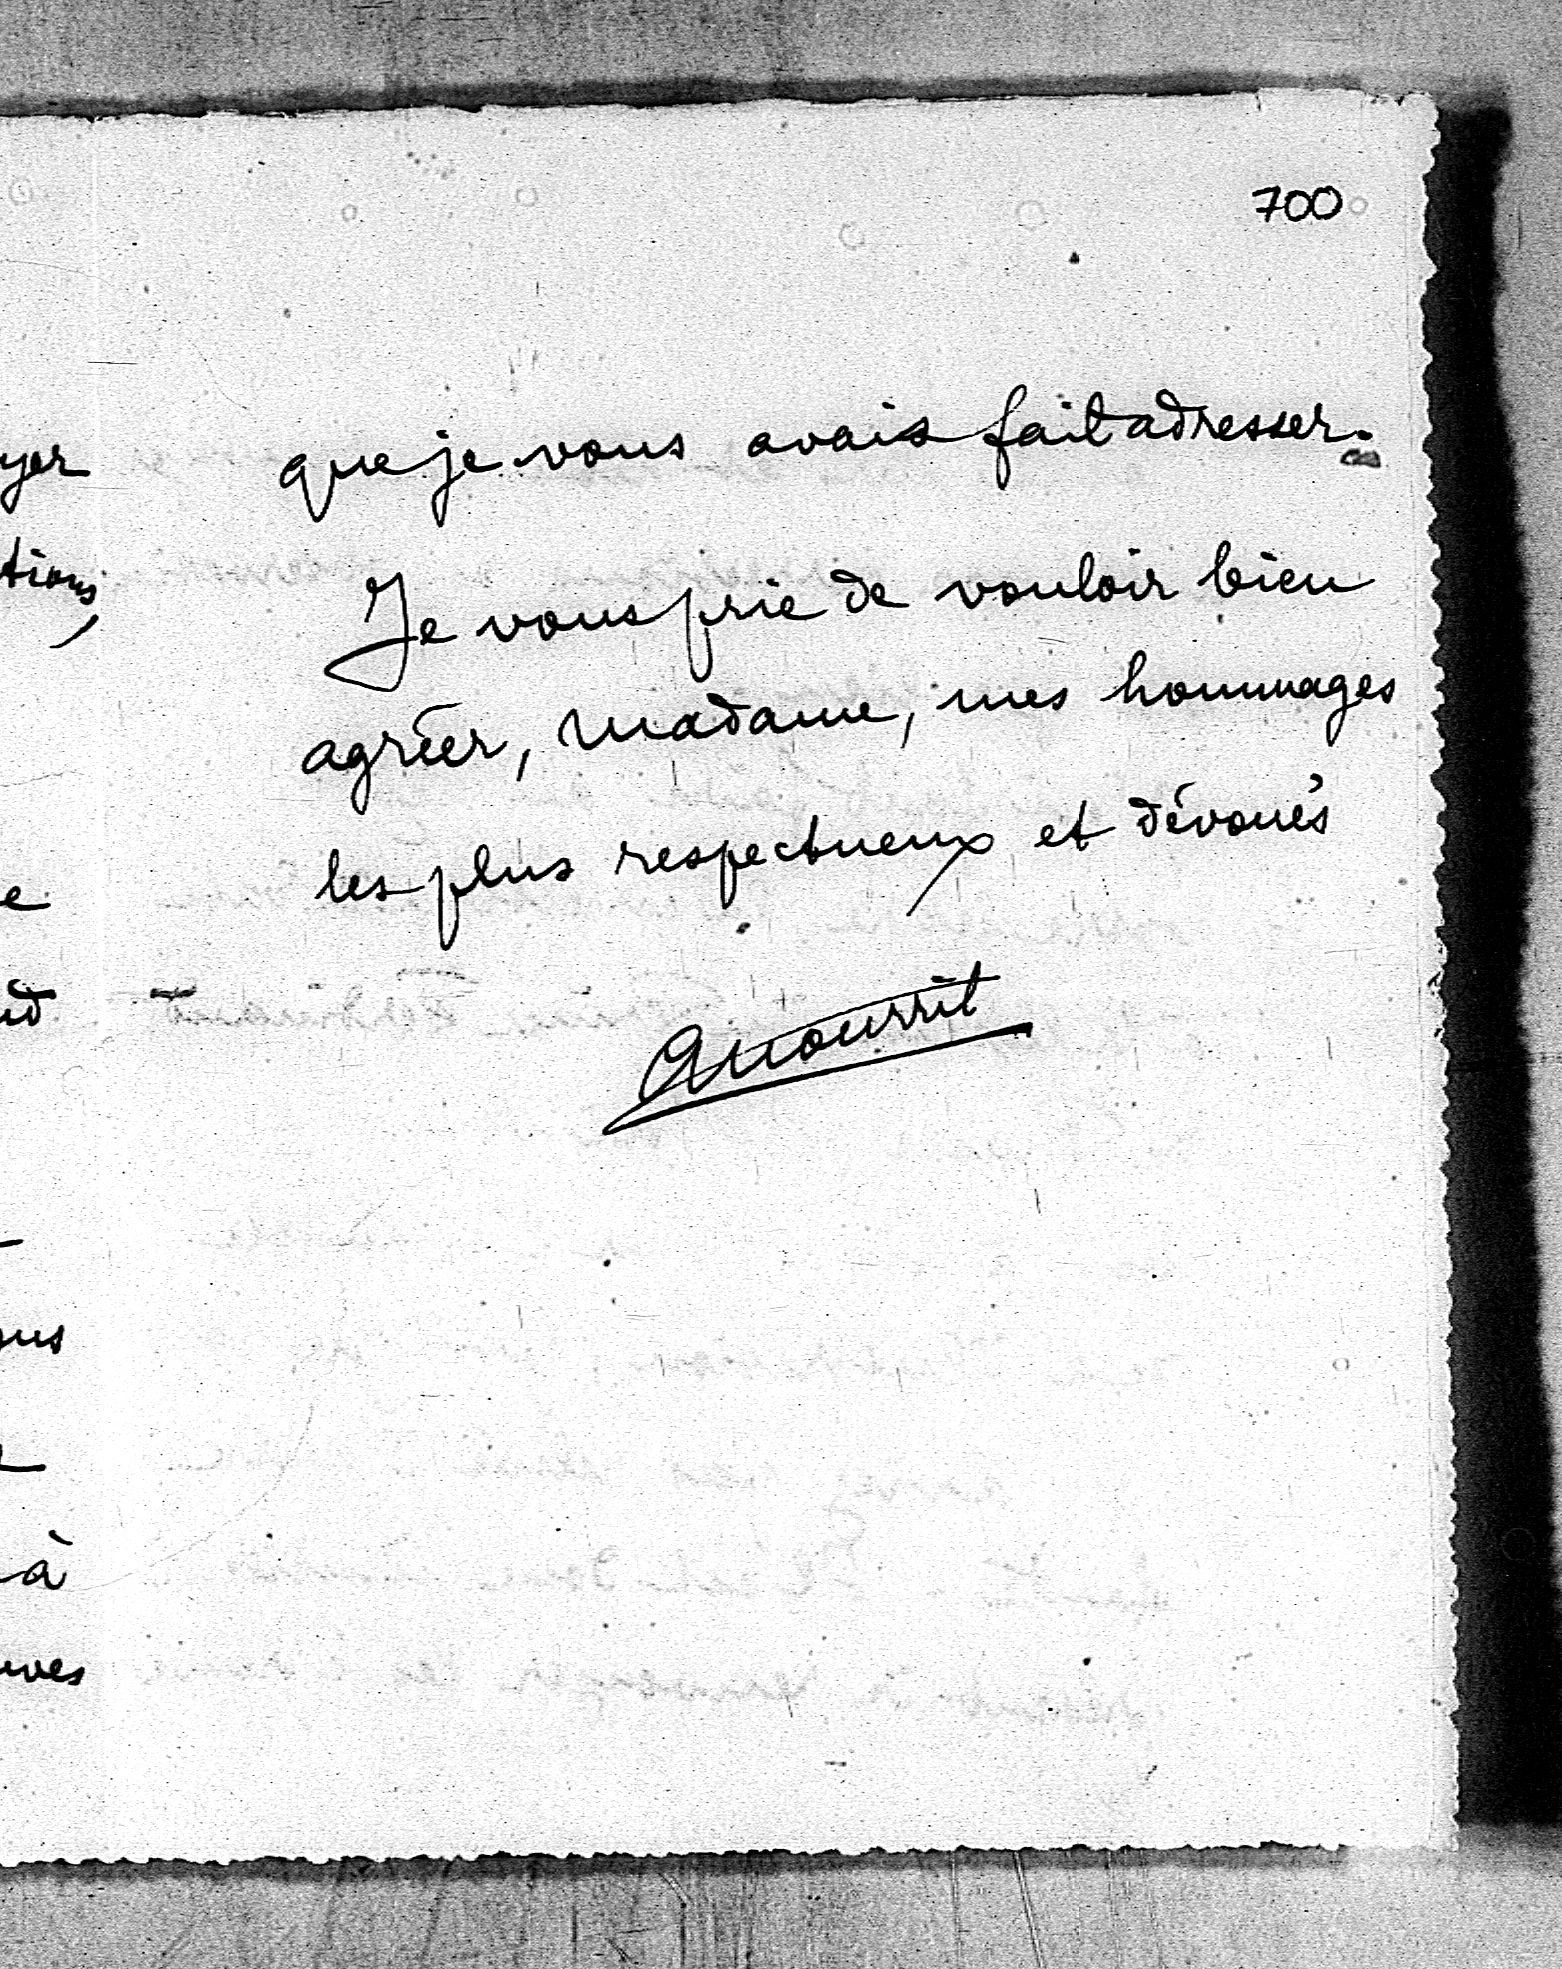 700
que je vous avais fait adresser.
Je vous prie de vouloir bien
agréer, Madame, mes hommages
les plus respectueux et dévoués
yer
tions,
e
us
à
uves